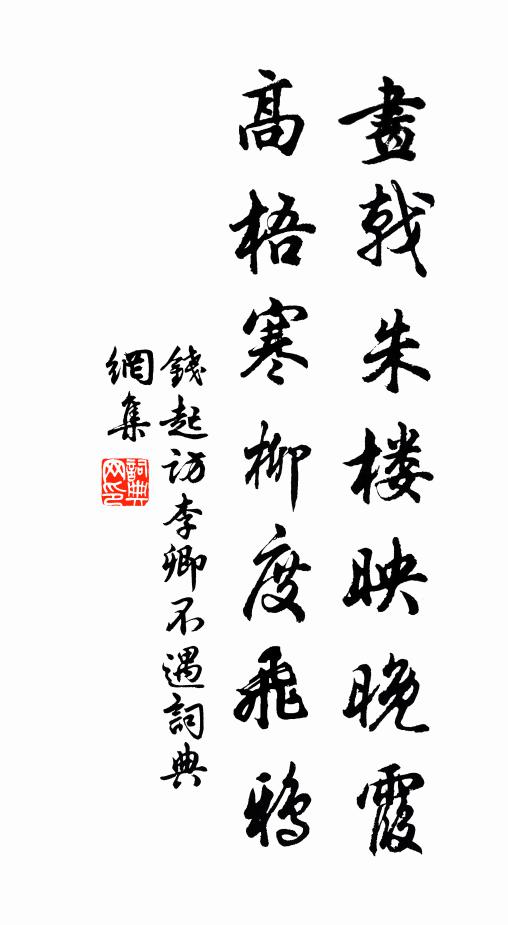 畫戟朱楼映晚霞
高梧寒柳度飛鴉
錢起訪李卿不遇詞典
網集
詞典
网印